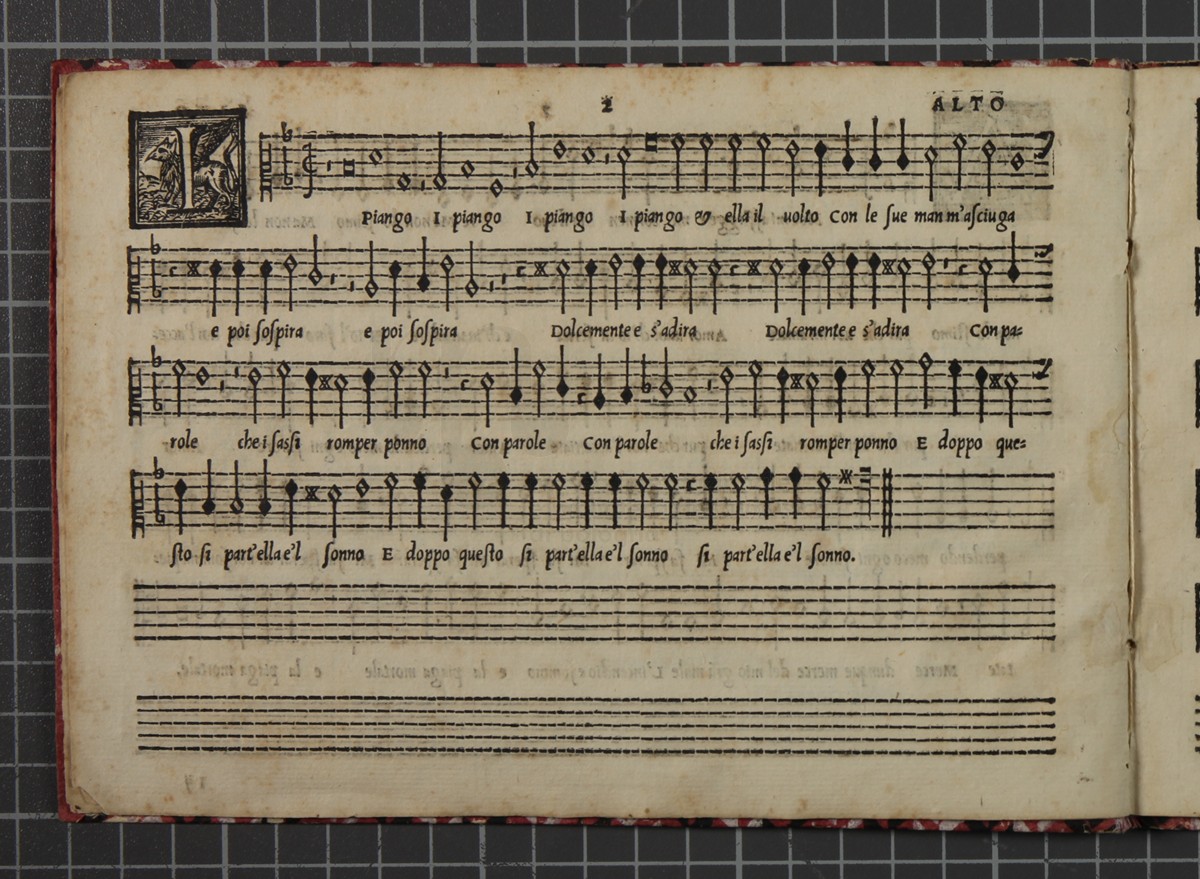 2 ALTO
I Piango I piango I piango I piango & ella il uolto Con le ſue man m'aſciuga
e poi ſoſpira e poi ſoſpira Dolcemente e s'adira Dolcemente e s'adira Con pa=
role che i ſaſſi romper ponno Con parole Con parole che i ſaſſi romper ponno E doppo que=
ſto ſi part'ella e'l ſonno E doppo queſto ſi part'ella e'l ſonno ſi part'ella e'l ſonno.